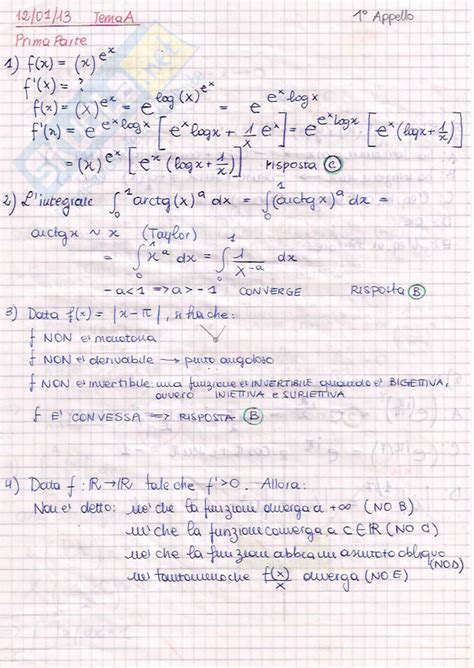 12/01/13 Tema A 1° Appello
Prima Parte
1) f(x) = (x)^{e^x}
f'(x) = ?
f(x) = (x)^{e^x} = e^{log(x)^{e^x}} = e^{e^x logx}
f'(x) = e^{e^x logx} [e^x logx + 1/x e^x] = e^{e^x logx} [e^x (logx + 1/x)]
= (x)^{e^x} [e^x (logx + 1/x)] risposta Ⓒ
2) L'integrale ∫_0^1 arctg(x)^a dx = ∫_0^1 (arctgx)^a dx =
arctgx ~ x (Taylor)
= ∫_0^1 x^a dx = ∫_0^1 1/x^{-a} dx
-a<1 => a>-1 CONVERGE RISPOSTA Ⓑ
3) Data f(x) = |x-π|, si ha che:
f NON e' monotona
f NON e' derivabile → punto angoloso
f NON e' invertibile: una funzione e' INVERTIBILE quando e' BIGETTIVA,
ovvero INIETTIVA e SURIETTIVA
f E' CONVESSA => RISPOSTA Ⓑ
4) Data f: ℝ→ℝ tale che f'>0. Allora:
Non e' detto: ne' che la funzione diverga a +∞ (NO B)
ne' che la funzione converga a C∈ℝ (NO C)
ne' che la funzione abbia un asintoto obliquo
(NO D)
ne' tantomeno che f(x)/x diverga (NO E)